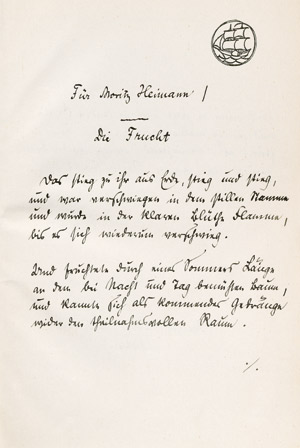 Für Moritz Heimann /
Die Frucht
Das stieg zu ihr aus Erde, stieg und stieg,
und war verschwiegen in dem stillen Stamme
und wurde in der klaren Blüthe Flamme,
bis es sich wiederum verschwieg.
Und fruchtete durch eines Sommers Länge
in dem bei Nacht und Tag bemühten Baum,
und kannte sich als kommendes Gedränge
wider den theilnahmsvollen Raum.
./.